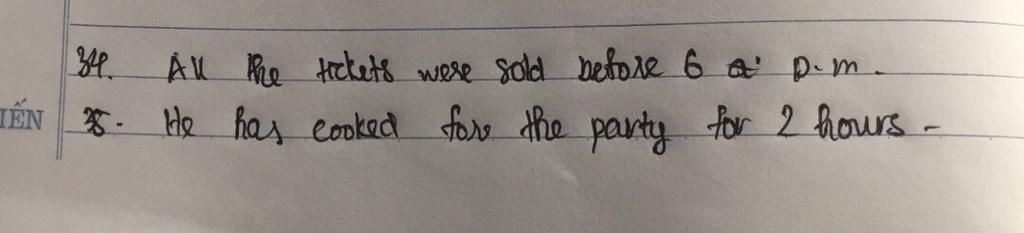 34. All the tickets were sold before 6 p.m.
IẾN
35. He has cooked for the party for 2 hours.